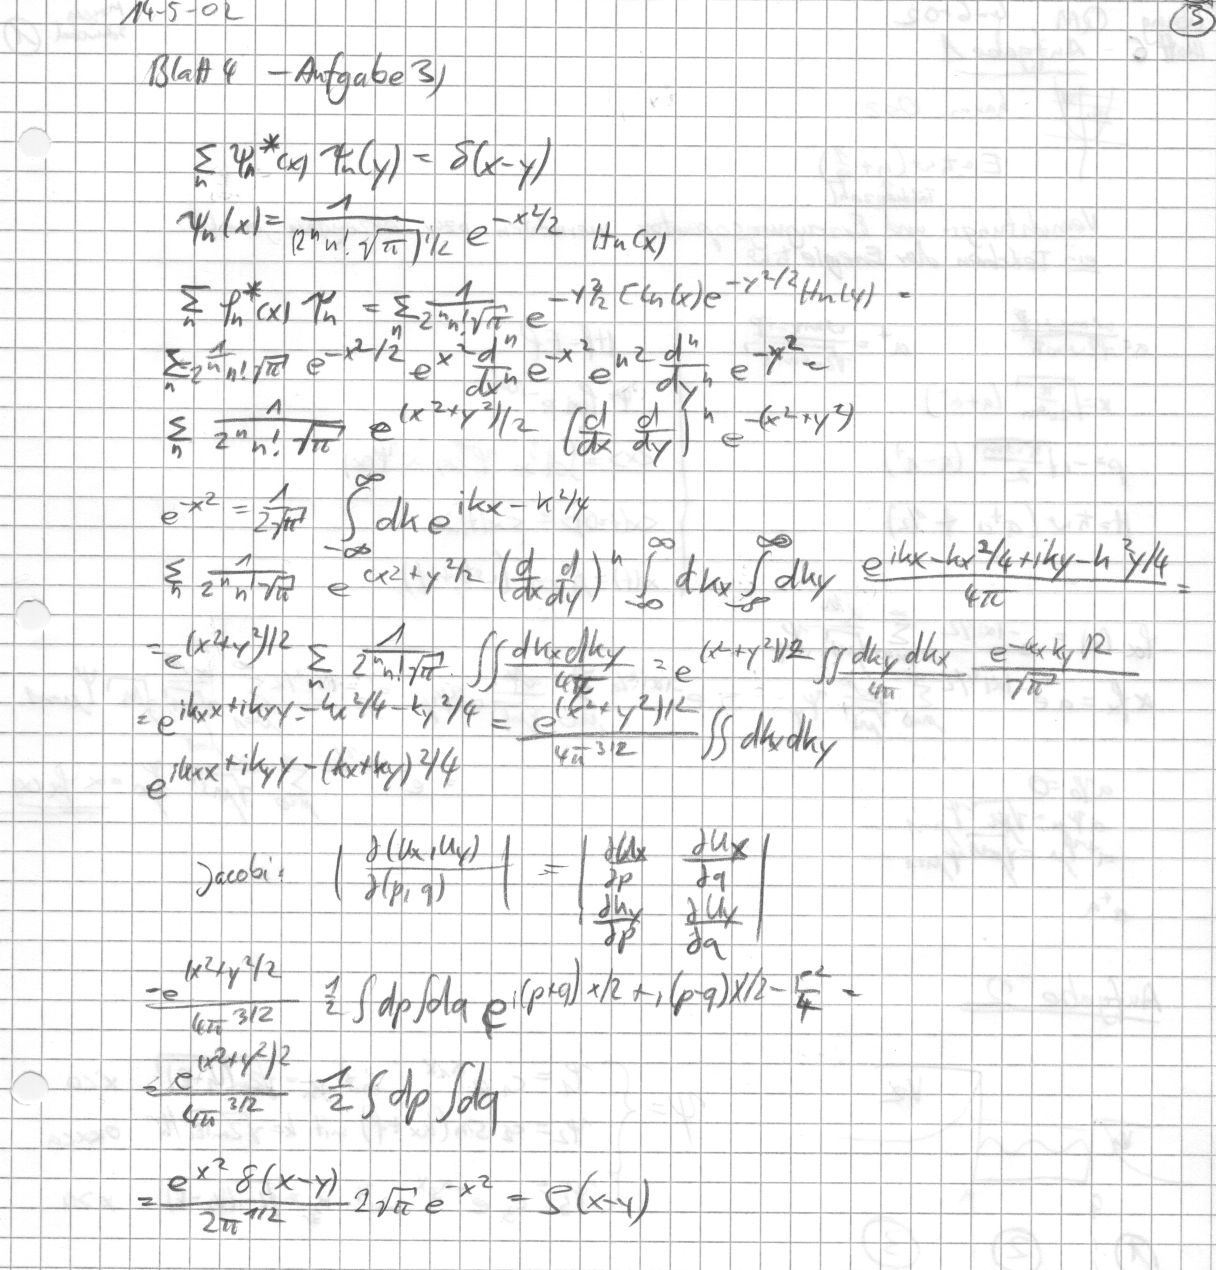 14-5-02
5
Blatt 4 - Aufgabe 3)
∑_n ψ_n*(x) ψ_n(y) = δ(x-y)
ψ_n(x) = 1/(2^n n! √π)^1/2 e^{-x²/2} H_n(x)
∑_n ψ_n*(x) ψ_n = ∑_n 1/(2^n n! √π) e^{-x²/2} H_n(x) e^{-y²/2} H_n(y) =
∑_n 1/(2^n n! √π) e^{-x²/2} e^{x²} d^n/dx^n e^{-x²} e^{n²} d^n/dy^n e^{-y²} =
∑_n 1/(2^n n! √π) e^{(x²+y²)/2} (d/dx d/dy)^n e^{-(x²+y²)}
e^{-x²} = 1/(2√π) ∫_{-∞}^{∞} dk e^{ikx - k²/4}
∑_n 1/(2^n n! √π) e^{(x2+y²/2} (d/dx d/dy)^n ∫_{-∞}^{∞} dkx ∫_{-∞}^{∞} dky e^{ikx-kx²/4+iky-k²y/4}/4π =
= e^{(x²+y²)/2} ∑_n 1/(2^n n! √π) ∫∫ dkx dky/4π = e^{(x²+y²)/2} ∫∫ dky dkx/4π e^{-kx ky/2}/√π
= e^{ikxx+ikyy-kx²/4-ky²/4} = e^{(x²+y²)/2}/4π^{3/2} ∫∫ dkx dky
e^{ikxx+ikyy-(kx+ky)²/4}
Jacobi: |∂(kx,ky)/∂(p,q)| = |∂kx/∂p ∂kx/∂q|
|∂ky/∂p ∂ky/∂q|
= e^{(x²+y²/2}/4π^{3/2} 1/2 ∫dp∫dq e^{i(p+q)x/2+i(p-q)y/2-p²/4} =
= e^{(x²+y²)2}/4π^{3/2} 1/2 ∫dp ∫dq
= e^{x²} δ(x-y)/2π^{1/2} 2√π e^{-x²} = δ(x-y)